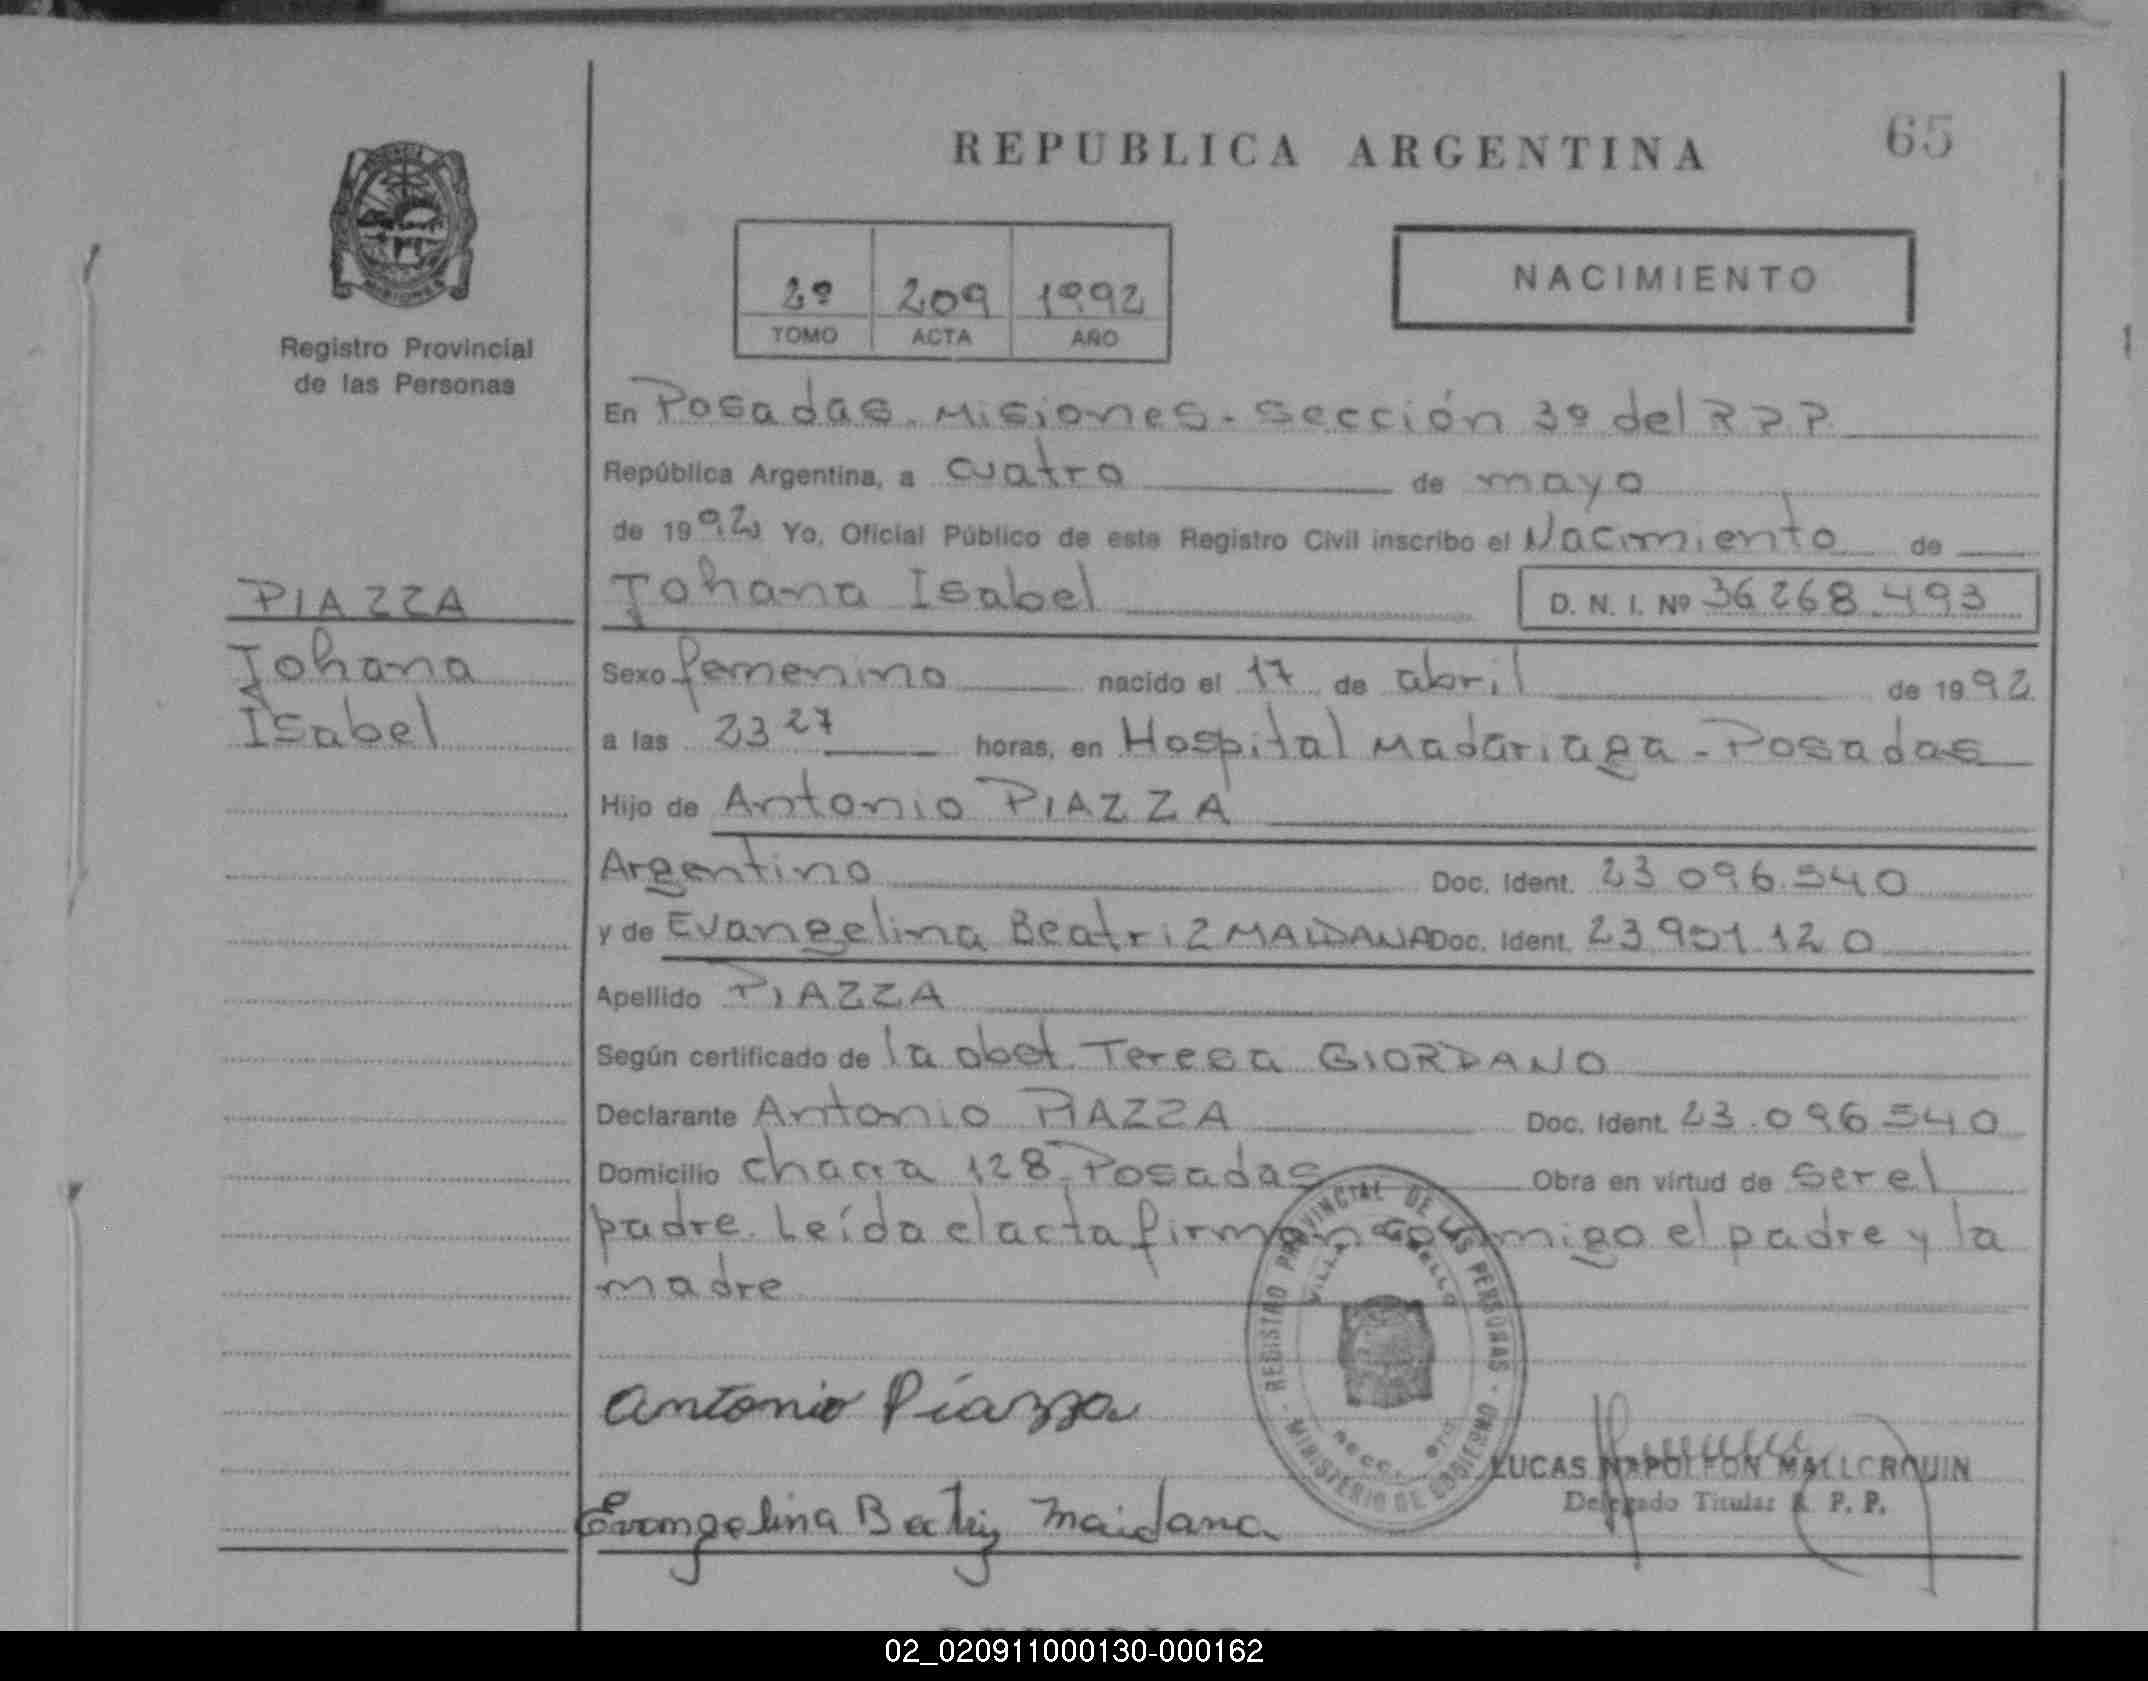 REPUBLICA ARGENTINA
65
2º 209 1992
TOMO ACTA AÑO
NACIMIENTO
Registro Provincial
de las Personas
En Posadas. Misiones - sección 3º del R P P.
República Argentina, a cuatro de mayo
de 1992 Yo, Oficial Público de este Registro Civil inscribo el Nacimiento de
PIAZZA
Johana
Isabel
Johana Isabel D. N. I. Nº 36 268.493
Sexo femenino nacido el 17 de abril de 1992
a las 23 27 horas, en Hospital Madariaga - Posadas
Hijo de Antonio PIAZZA
Argentino Doc. Ident. 23 096.540
y de Evangelina Beatriz MAIDANA Doc. Ident. 23 951 120
Apellido PIAZZA
Según certificado de la obst. Teresa GIORDANO
Declarante Antonio PIAZZA Doc. Ident. 23.096 540
Domicilio chacra 128 - Posadas Obra en virtud de ser el
padre. Leída el acta firman conmigo el padre y la
madre
REGISTRO PROVINCIAL DE LAS PERSONAS - MINISTERIO DE GOBIERNO -
VILLA
Antonio Piazza
LUCAS NAPOLEON MALLORQUIN
Delegado Titular R. P. P.
Evangelina Beatriz Maidana
02_020911000130-000162